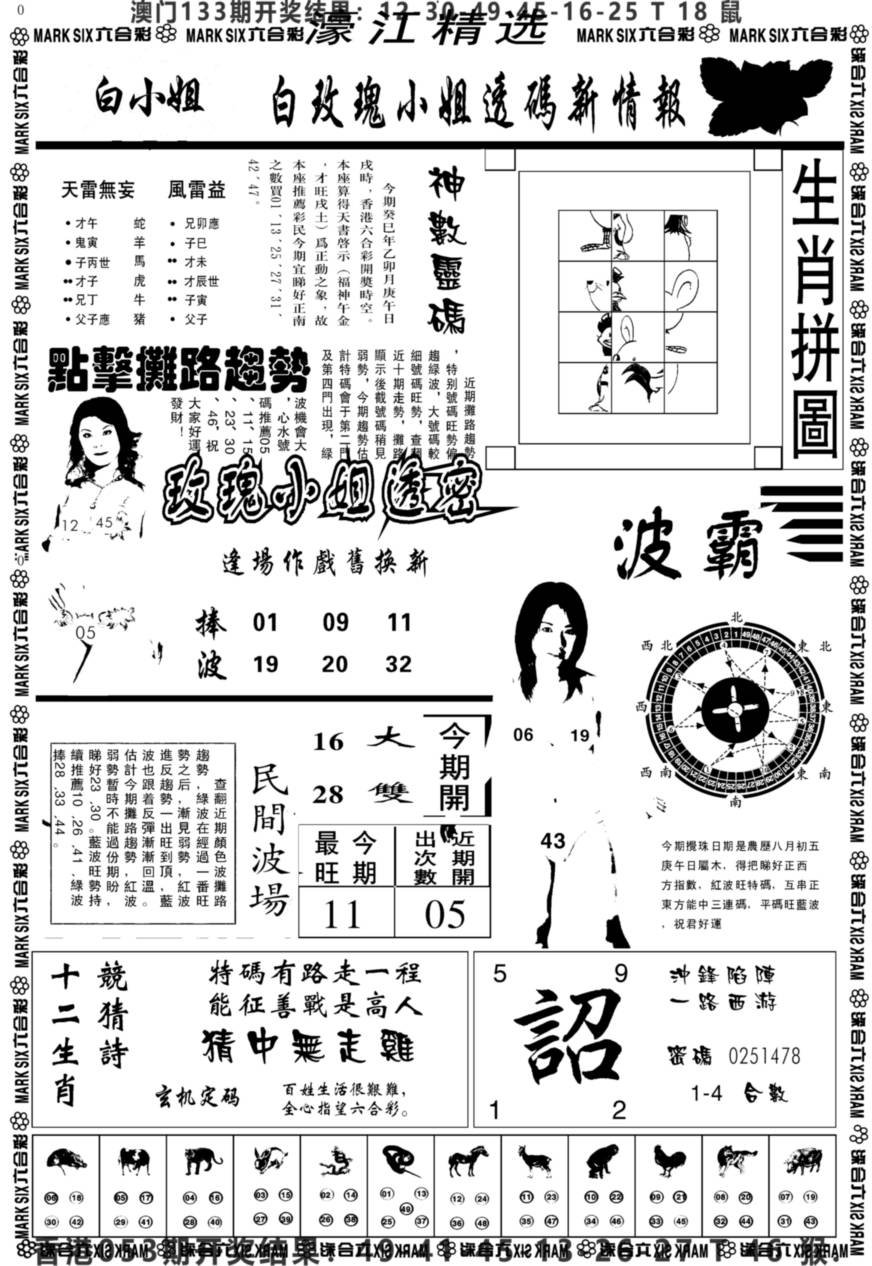 澳门133期开奖结果：12-30-49-45-16-25 T 18 鼠
MARK SIX六合彩 MARK SIX六合彩 濠江精选 MARK SIX六合彩 MARK SIX六合彩
白小姐 白玫瑰小姐透碼新情報
天雷無妄 風雷益
才午 蛇 兄卯應
鬼寅 羊 子巳
子丙世 馬 才未
才子 虎 才辰世
兄丁 牛 子寅
父子應 豬 父子
神數靈碼
今期癸巳年乙卯月庚午日
戌時，香港六合彩開獎時空。
本座算得天書啓示（福神午金
，才旺戌土）爲正動之象，故
本座推薦彩民今期宜睇好正南
之數買01、13、25、27、31、
42、47。
生肖拼圖
點擊攤路趨勢
近期攤路趨勢
，特别號碼旺勢偏
趨綠波，大號碼較
細號碼旺勢，查翻
近十期走勢，攤路
顯示後截號碼稍見
弱勢，今期趨勢估
計特碼會于第二門
及第四門出現，綠
波機會大
，心水號
碼推薦05
、11、15
、23、30
、46，祝
大家好運
發財！
12 45
05
玫瑰小姐透密
逢場作戲舊換新
捧波
01 09 11
19 20 32
波霸
06 19
43
北
西北 東北
西 東
西南 東南
南
今期攪珠日期是農歷八月初五
庚午日屬木，得把睇好正西
方指數，紅波旺特碼，互串正
東方能中三連碼，平碼旺藍波
，祝君好運
查翻近期顏色波攤路
趨勢，綠波在經過一番旺
勢之后，漸見弱勢，紅藍波
進反趨勢一出旺到頂，
波也跟着反彈漸漸回温，
估計今期攤路趨勢紅波。
弱勢暫時不能過份期盼
睇好23、30。藍波旺勢持
續推薦10、26、41，綠波
捧28、33、44。
民間波場
16 大
28 雙
今期開
最旺 今期
出次數 近期開
11 05
十二生肖
競猜詩
特碼有路走一程
能征善戰是高人
猜中無走雞
玄机定码
百姓生活很艱難，
全心指望六合彩。
5 9
詔
1 2
沖鋒陷陣
一路西游
密碼 0251478
1-4 合數
06 18 05 17 04 16 03 15 02 14 01 13 12 24 11 23 10 22 09 21 08 20 07 19
49
30 42 29 41 28 40 27 39 26 38 25 37 36 48 35 47 34 46 33 45 32 44 31 43